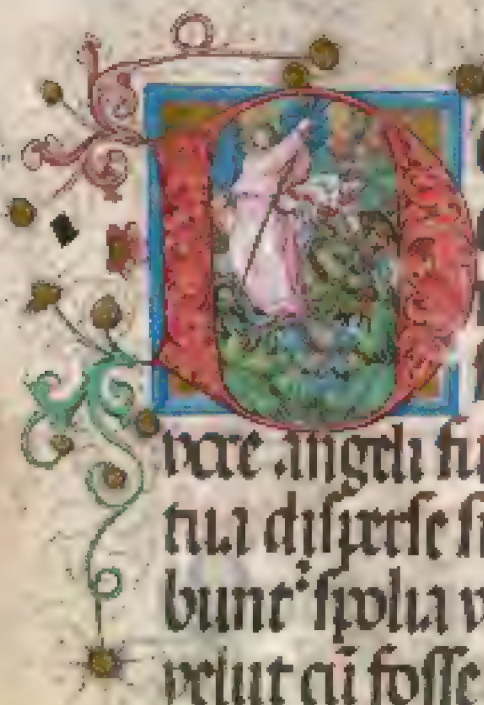 D
voce angeli fu
tua disperse s
bunt' spolia v
velut cū fosse